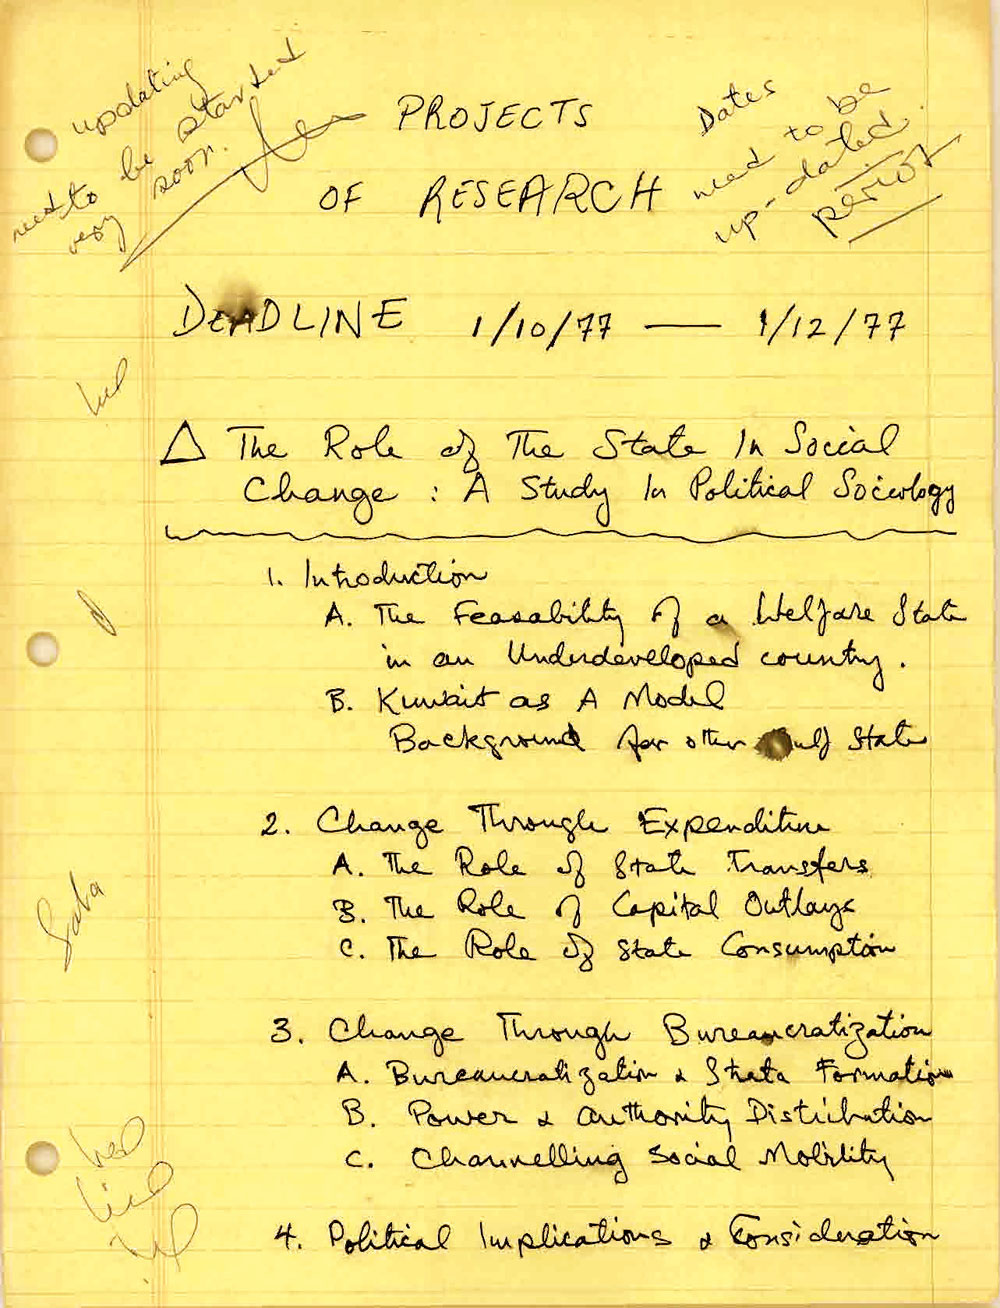 updating
need to be started
very soon.
Yes
Dates
need to be
up-dated.
period
PROJECTS
OF RESEARCH
DEADLINE 1/10/77 — 1/12/77
△ The Role of The State In Social
Change : A Study In Political Sociology
1. Introduction
A. The Feasability of a Welfare State
in an Underdeveloped country.
B. Kuwait as A Model
Background for other Gulf State
2. Change Through Expenditure
A. The Role of State Transfers
B. The Role of Capital Outlays
C. The Role of State Consumption
Saba
3. Change Through Bureaucratization
A. Bureaucratization & Strata Formation
B. Power & Authority Distribution
C. Channelling Social Mobility
4. Political Implications & Consideration